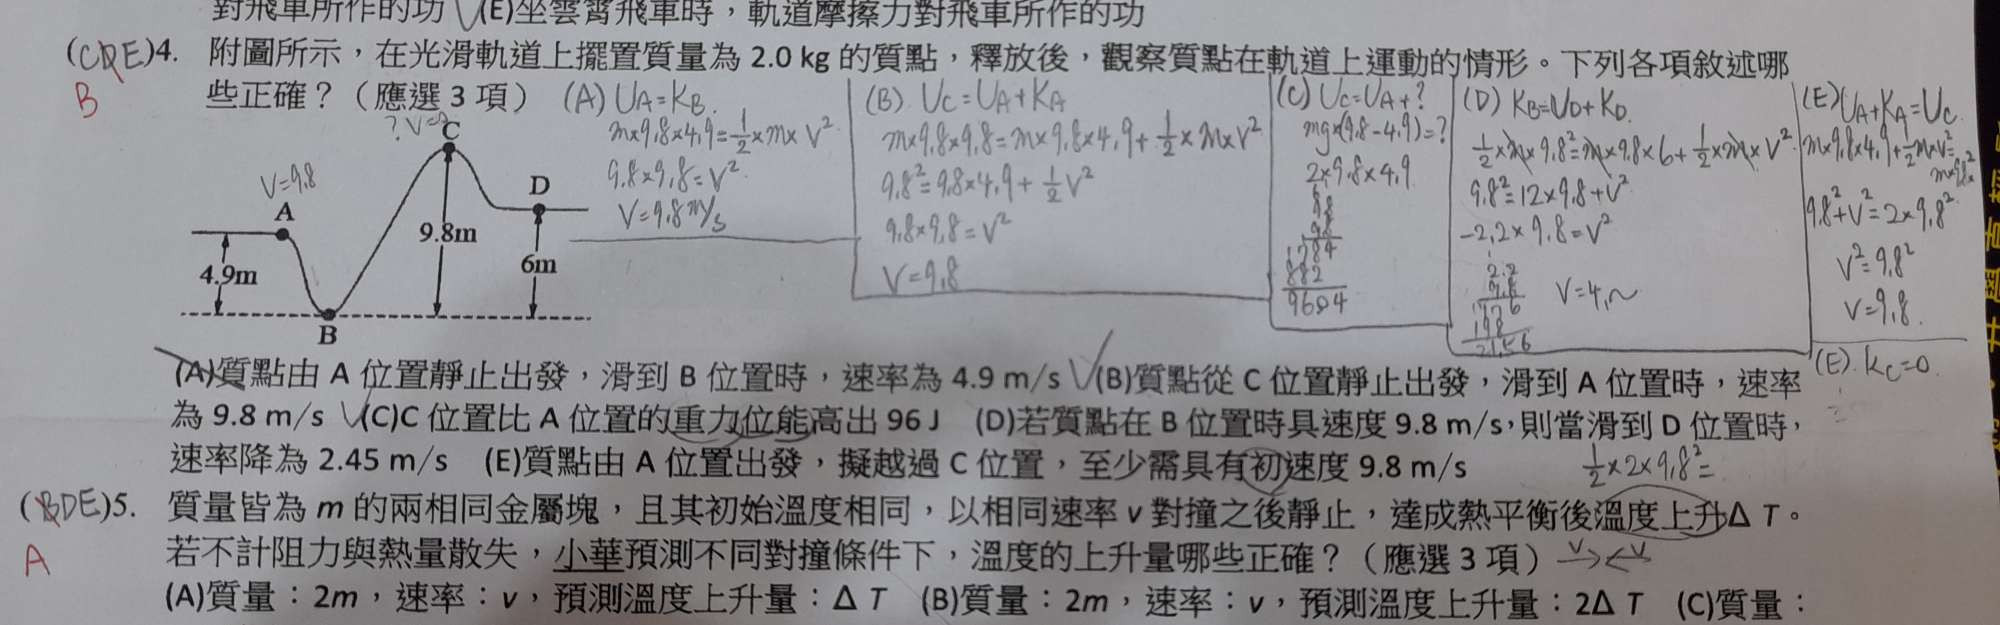 對飛車所作的功 (E)坐雲霄飛車時，軌道摩擦力對飛車所作的功
(CDE)4. 附圖所示，在光滑軌道上擺置質量為 2.0 kg 的質點，釋放後，觀察質點在軌道上運動的情形。下列各項敘述哪
B
些正確？（應選 3 項）
(A) UA=KB.
m×9.8×4.9=1/2×m×V²
9.8×9.8=V²
V=9.8 m/s
(B). UC=UA+KA
m×9.8×9.8=m×9.8×4.9+1/2×m×V²
9.8²=9.8×4.9+1/2V²
9.8×9.8=V²
V=9.8
(C) UC=UA+?
mg×(9.8-4.9)=?
2×9.8×4.9
9.8
9.8
784
882
9604
(D) KB=UD+KD.
1/2×m×9.8²=m×9.8×6+1/2×m×V²
9.8²=12×9.8+V²
-2.2×9.8=V²
2.2
9.8
176
198
21.56
V=4.~
(E) UA+KA=UC.
m×9.8×4.9+1/2mV²=
m×9.8²
9.8²+V²=2×9.8²
V²=9.8²
V=9.8.
(E). KC=0.
? V=?
C
V=9.8
A
D
9.8m
4.9m
6m
B
(A)質點由 A 位置靜止出發，滑到 B 位置時，速率為 4.9 m/s (B)質點從 C 位置靜止出發，滑到 A 位置時，速率
為 9.8 m/s (C)C 位置比 A 位置的重力位能高出 96 J (D)若質點在 B 位置時具速度 9.8 m/s，則當滑到 D 位置時，
速率降為 2.45 m/s (E)質點由 A 位置出發，擬越過 C 位置，至少需具有初速度 9.8 m/s
1/2×2×9.8²=
(BDE)5. 質量皆為 m 的兩相同金屬塊，且其初始溫度相同，以相同速率 v 對撞之後靜止，達成熱平衡後溫度上升Δ T。
A
若不計阻力與熱量散失，小華預測不同對撞條件下，溫度的上升量哪些正確？（應選 3 項）
V→ ←V
(A)質量：2m，速率：v，預測溫度上升量：Δ T (B)質量：2m，速率：v，預測溫度上升量：2Δ T (C)質量：